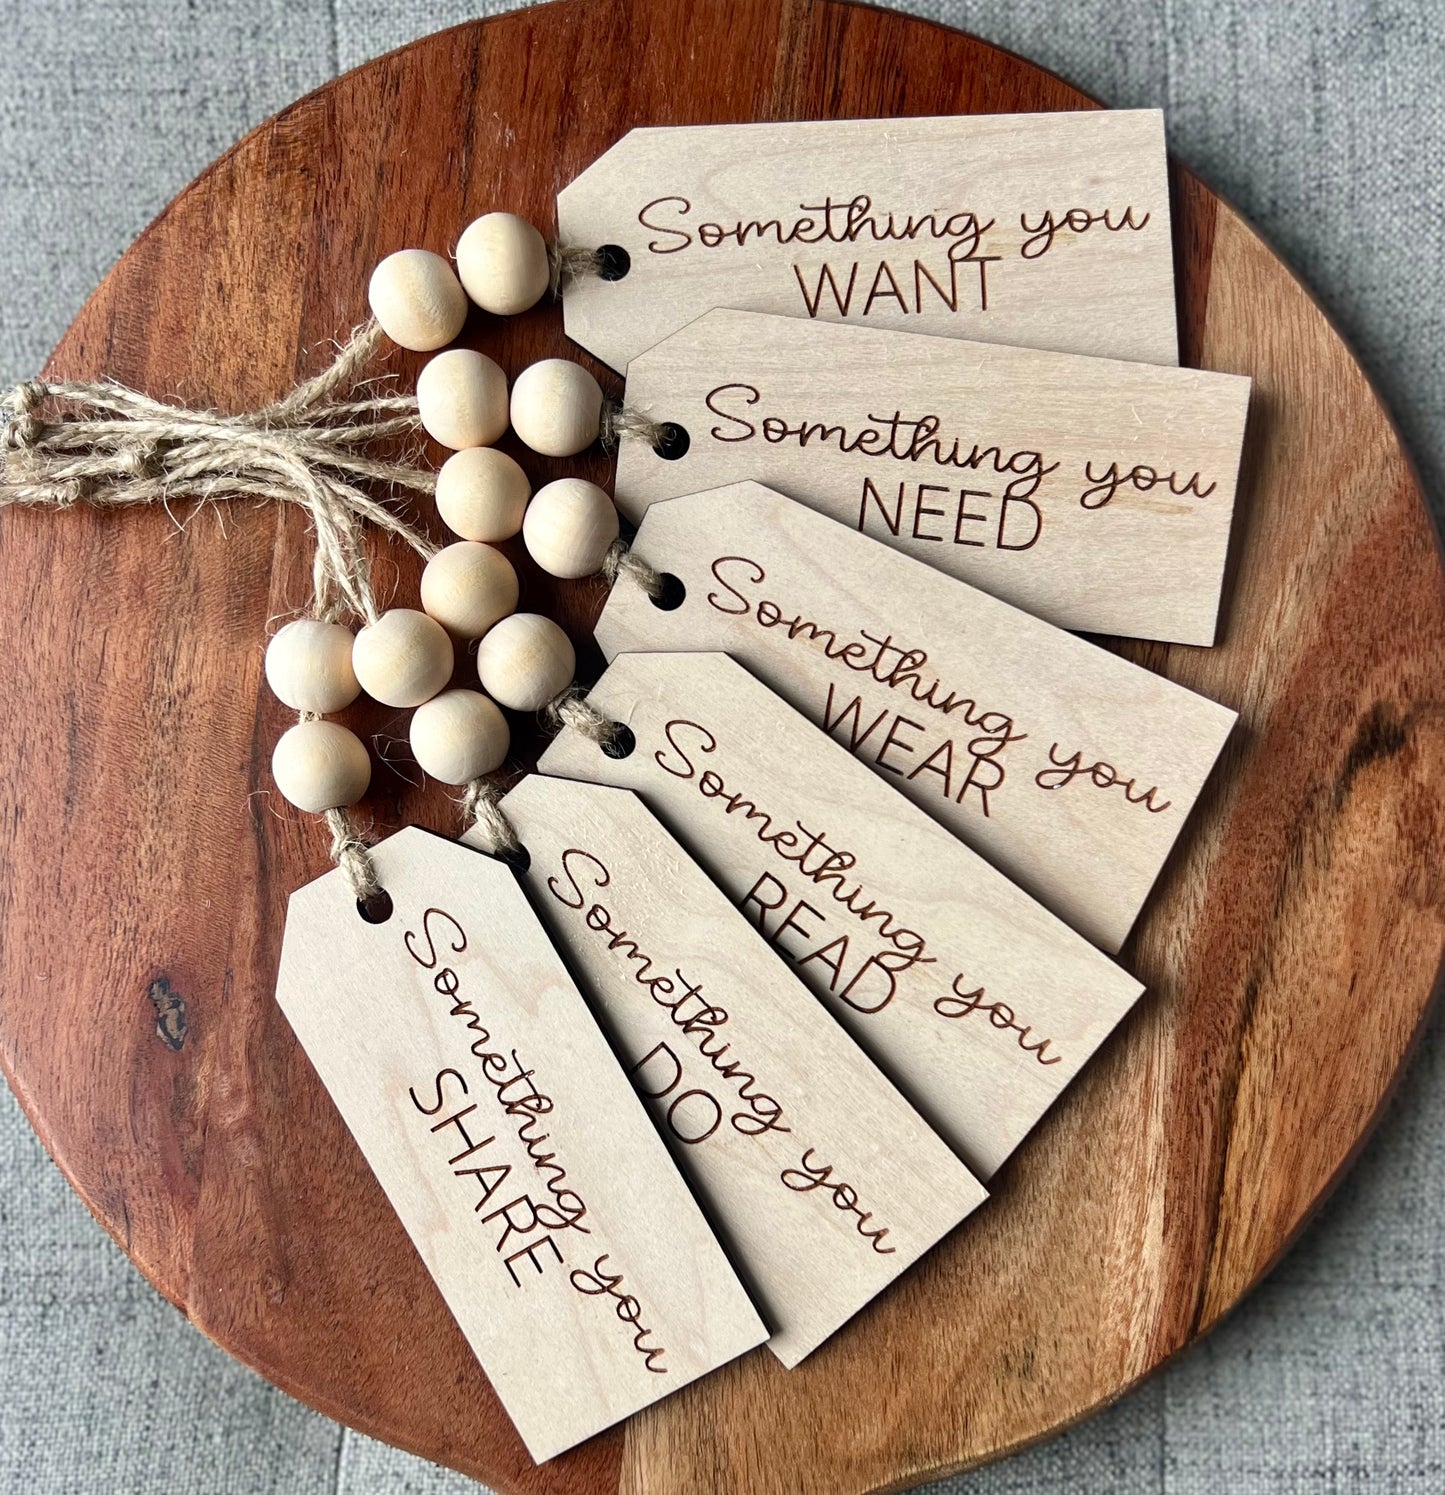 Something you
WANT
Something you
NEED
Something you
WEAR
Something you
READ
Something you
DO
Something you
SHARE